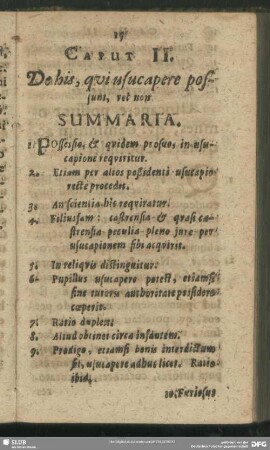 17
CAPUT II.
De his, qvi usucapere pos-
sunt, vel non
SUMMARIA.
1. Possessio, & qvidem pro suo, in usu-
capione reqviritur.
2. Etiam per alios possidenti usucapio
recte procedit.
3. An scientia his reqviratur.
4. Filiusfam: castrensia & qvasi ca-
strensia peculia pleno jure per
usucapionem sibi acqvirit.
5. In reliqvis distingvitur.
6. Pupillus usucapere potest, etiamsi
sine tutoris authoritate possidere
cœperit.
7. Ratio duplex.
8. Aliud obtinet circa infantem.
9. Prodigo, etiamsi bonis interdictum
sit, usucapere adhuc licet. Ratio
ibid.
10. Furiosus
SLUB